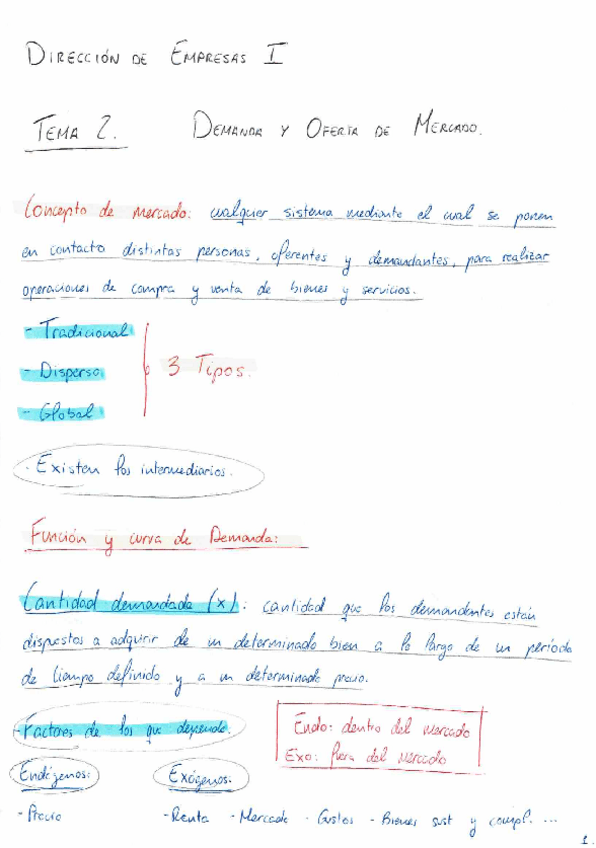 DIRECCIÓN DE EMPRESAS I
TEMA 2. DEMANDA Y OFERTA DE MERCADO.
Concepto de mercado: cualquier sistema mediante el cual se ponen
en contacto distintas personas, oferentes y demandantes, para realizar
operaciones de compra y venta de bienes y servicios.
- Tradicional
- Disperso
- Global
3 Tipos.
· Existen los intermediarios.
Función y curva de Demanda:
Cantidad demandada (x): cantidad que los demandantes están
dispuestos a adquirir de un determinado bien a lo largo de un período
de tiempo definido y a un determinado precio.
- Factores de los que depende.
Endo: dentro del mercado
Exo: fuera del mercado
Endógenos:
Exógenos:
- Precio
- Renta - Mercado · Gustos - Bienes sust y compl. ...
1.